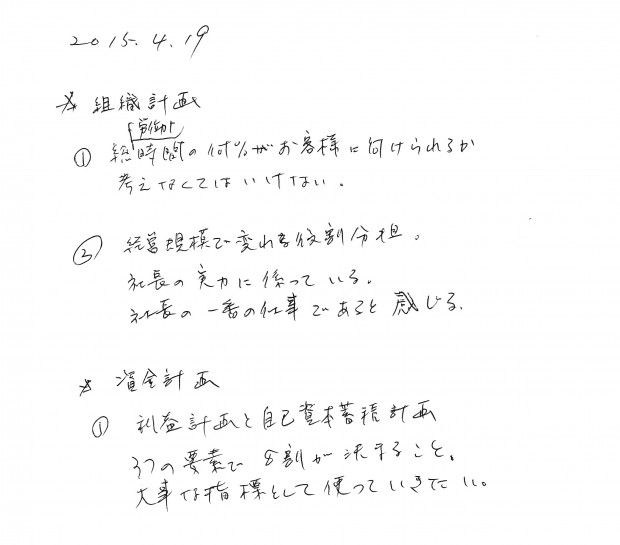 2015.4.19
☆ 組織計画
「労働」
① 総時間の何%がお客様に向けられるか
考えなくてはいけない。
③ 経営規模で変わる役割分担。
社長の実力に係っている。
社長の一番の仕事であると感じる。
☆ 資金計画
① 利益計画と自己資本蓄積計画
3つの要素で8割が決まること。
大事な指標として使っていきたい。